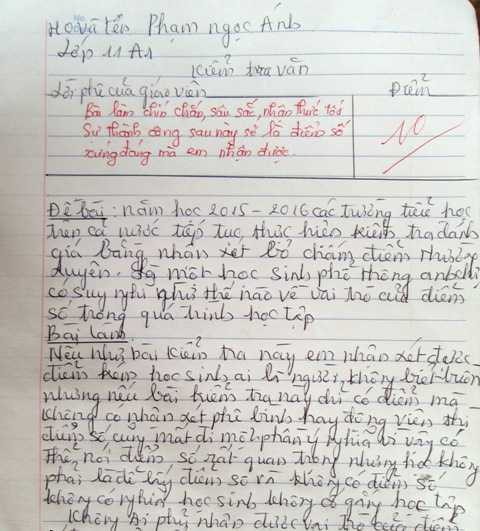 Họ và tên Phạm ngọc Ánh
Lớp 11 A1
Kiểm tra văn
Lời phê của giáo viên
Điểm
Bài làm chín chắn, sâu sắc, nhận thức tốt
Sự thành công sau này sẽ là điểm số
xứng đáng mà em nhận được.
10
Đề bài: năm học 2015 - 2016 các trường tiểu học
trên cả nước tiếp tục thực hiện kiểm tra đánh
giá bằng nhận xét bỏ chấm điểm thường
xuyên. Là một học sinh phổ thông anh chị
có suy nghĩ như thế nào về vai trò của điểm
số trong quá trình học tập
Bài làm
Nếu như bài kiểm tra này em nhận xét được
điểm kém học sinh ai là người không biết buồn
nhưng nếu bài kiểm tra này chỉ có điểm mà
không có nhận xét phê bình hay động viên thì
điểm số cũng mất đi một phần ý nghĩa vì vậy có
thể nói điểm số rất quan trọng nhưng học không
phải là để lấy điểm số và không có điểm số
không có nghĩa học sinh không cố gắng học tập
Không ai phủ nhận được vai trò của điểm